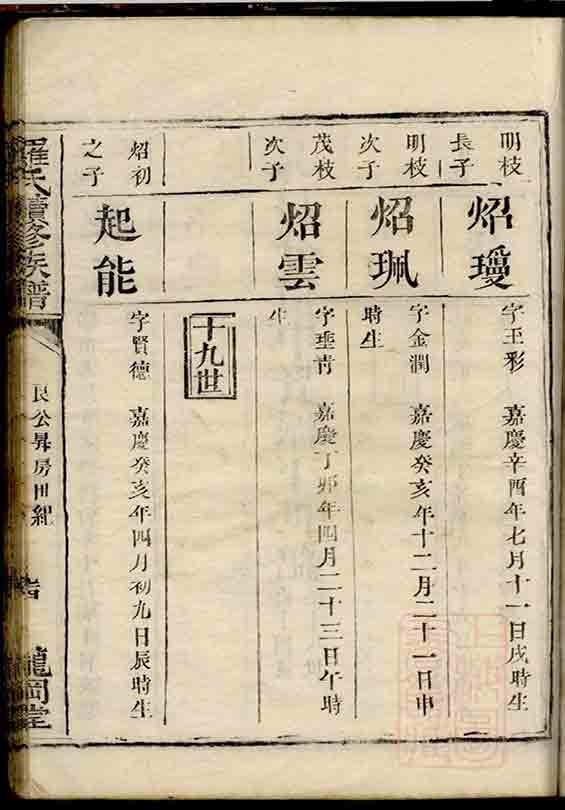 明枝
長子
炤璦
字玉彩 嘉慶辛酉年七月十一日戌時生
明枝
次子
炤珮
字金潤 嘉慶癸亥年十二月二十一日申
時生
茂枝
次子
炤雲
字垂青 嘉慶丁卯年四月二十三日午時
生
十九世
炤初
之子
起能
字賢德 嘉慶癸亥年四月初九日辰時生
羅氏續修族譜
良公昇房世紀
龍岡堂